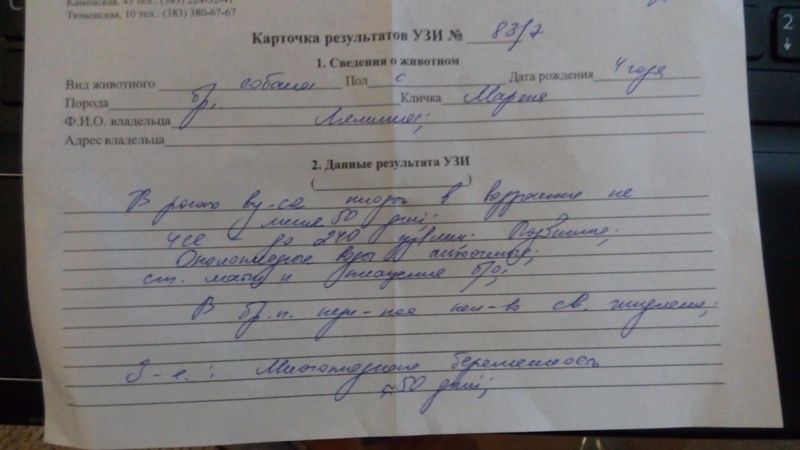 Каменская, 45 тел.: (383) 224-52-41
Тюменская, 10 тел.: (383) 380-67-67
Карточка результатов УЗИ № 83/7
1. Сведения о животном
Вид животного собака Пол с Дата рождения 4 года
Порода бп. Кличка Марта
Ф.И.О. владельца
Адрес владельца
2. Данные результата УЗИ
( )
В рогах плоды в возрасте не
менее 50 дней;
ЧСС - до 240
Околоплодные воды
ст. матки и б/о;
В бр.п. кол-во св. жидкости;
Многоплодная беременность
≈50 дней;
2